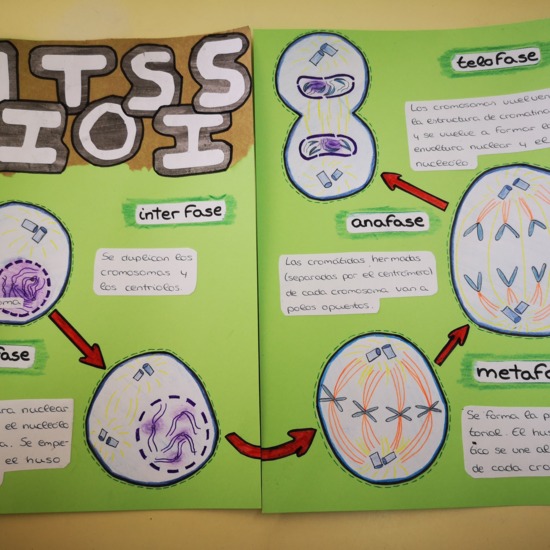 ITSS
IOI
interfase
Se duplican los
cromosomas y
los centriolos.
fase
nuclear
el nucleolo
a. Se empe-
el huso
telofase
Los cromosomas vuelven
la estructura de cromatina
y se vuelve a formar la
envoltura nuclear y el
nucleolo.
anafase
Las cromátidas hermadas
(separadas por el centrómero)
de cada cromosoma van a
polos opuestos.
metafa
Se forma la p
torial. El hus
tico se une al
de cada cro